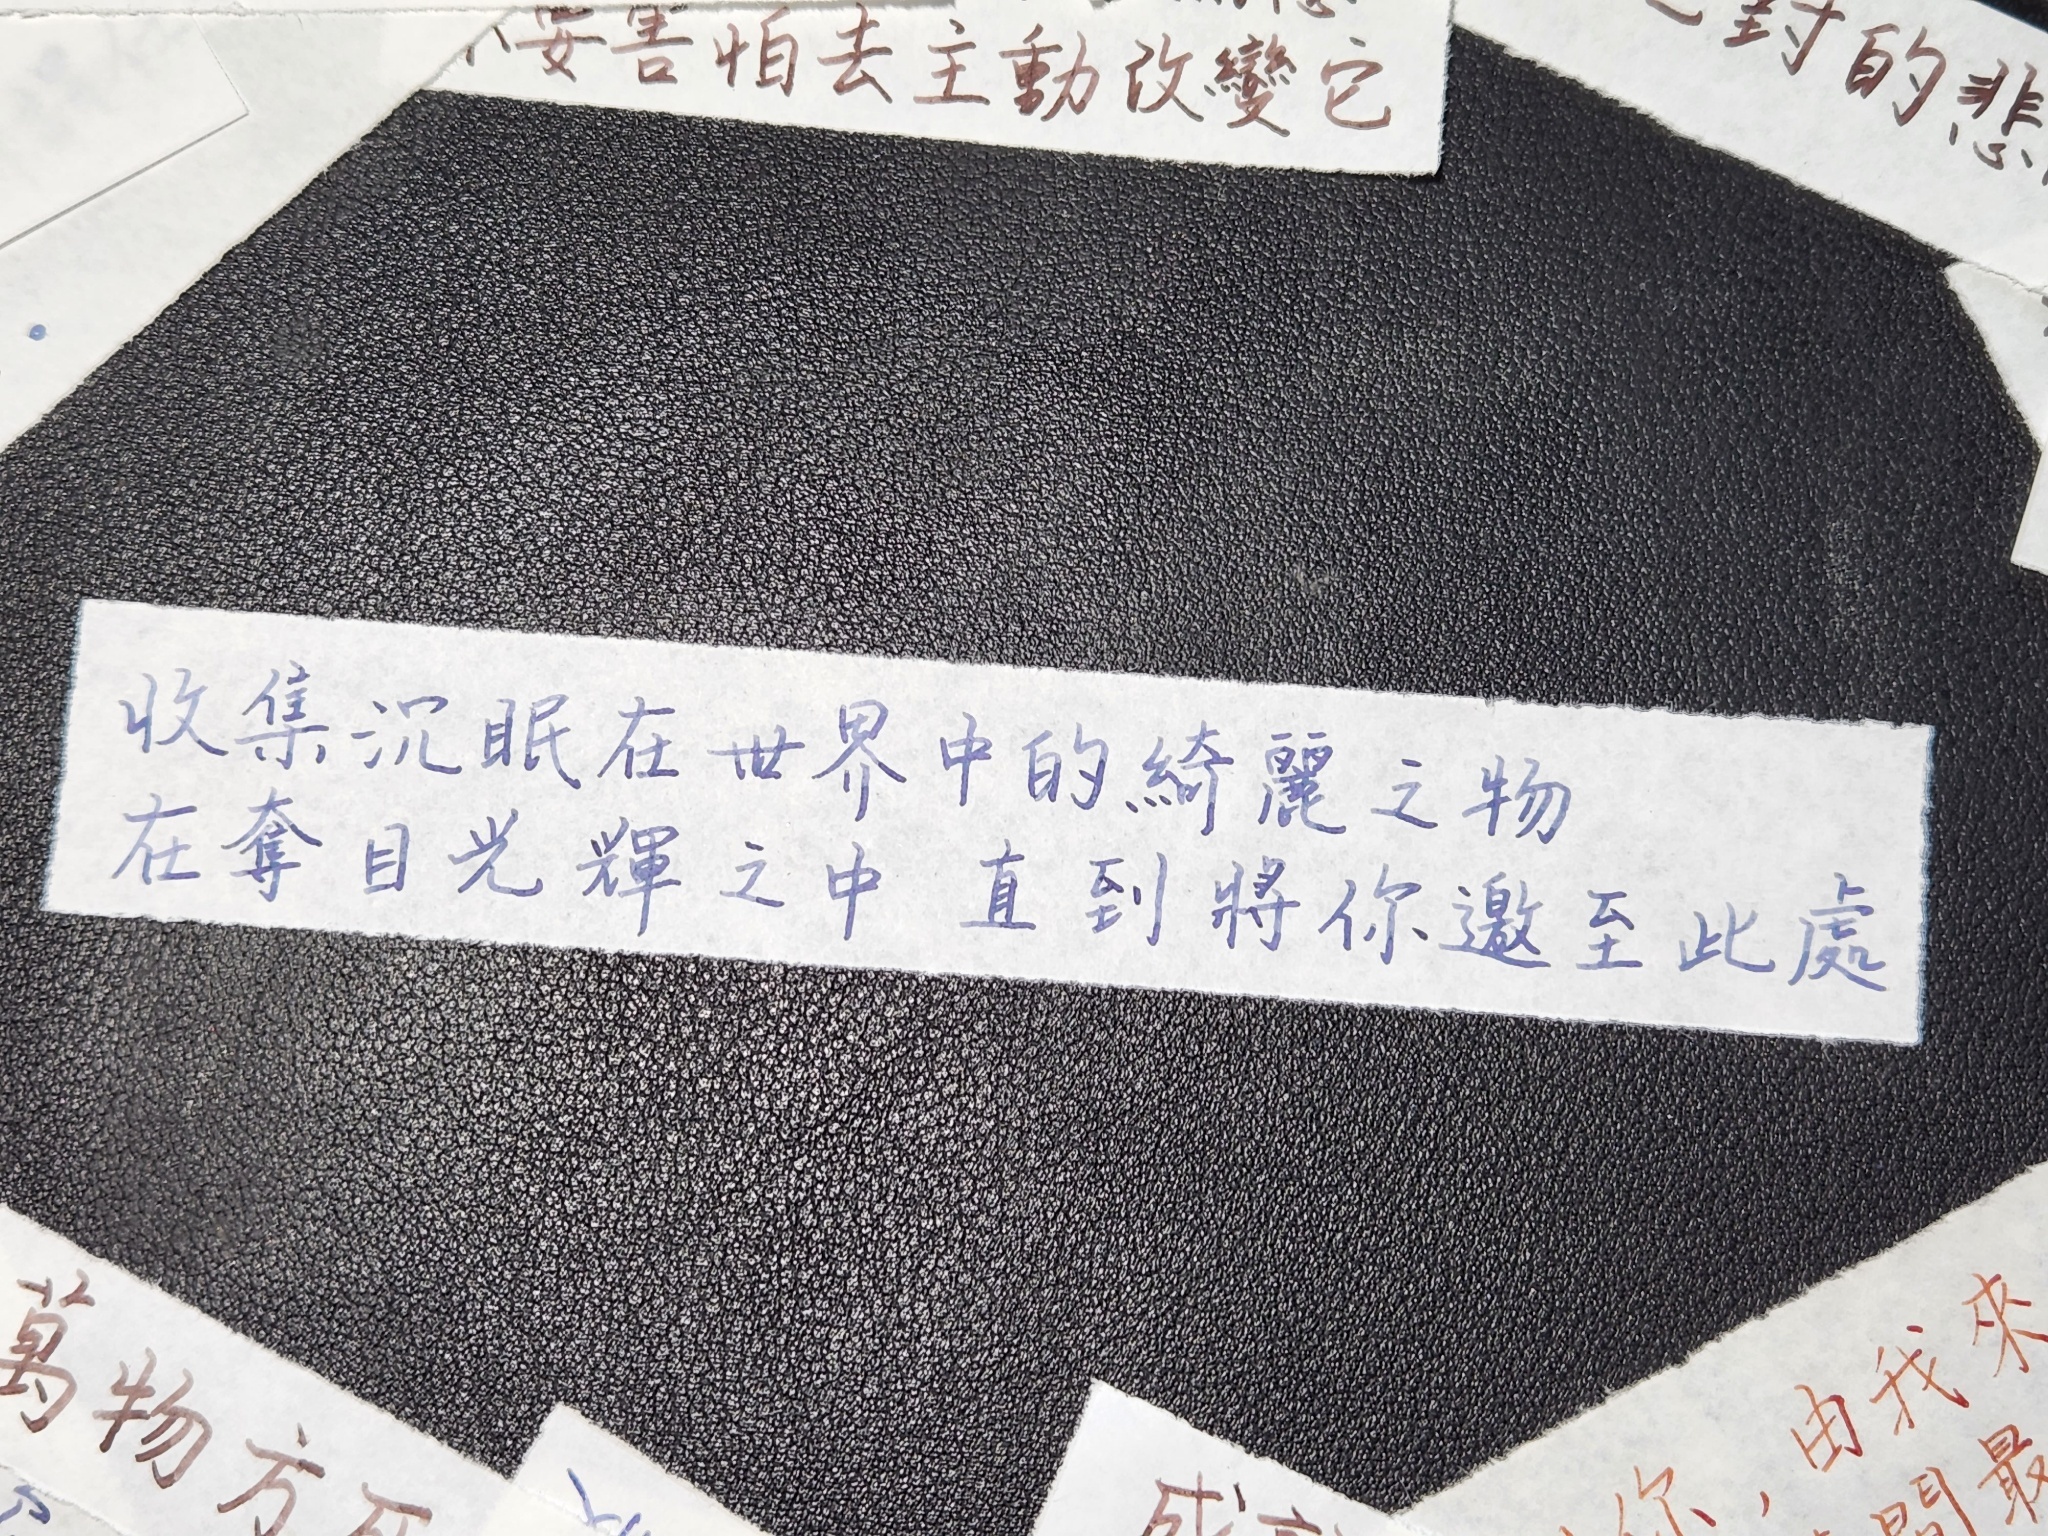 要害怕去主動改變它
對的悲
收集沉眠在世界中的綺麗之物
在奪目光輝之中 直到將你邀至此處
萬物方死
成
你，由我來
間最